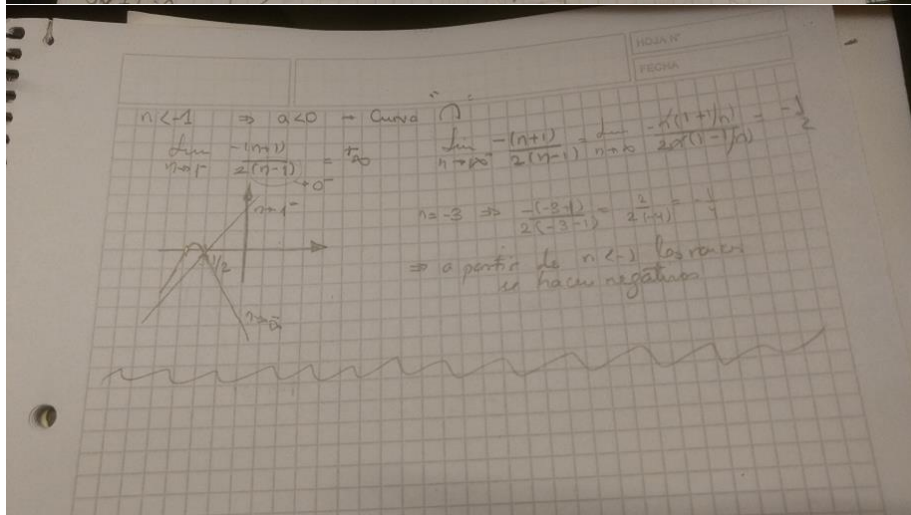 HOJA Nº
FECHA
n < -1 ⇒ a < 0 → Curva ∩
lim n→1⁻ -(n+1)/2(n-1) = +∞
→0⁻
lim n→-∞ -(n+1)/2(n-1) = lim n→∞ -n(1+1/n)/2n(1-1/n) = -1/2
n→1⁻
1/2
n = -3 ⇒ -(-3+1)/2(-3-1) = 2/2(-4) = -1/4
⇒ a partir de n < -1 las raíces
se hacen negativas